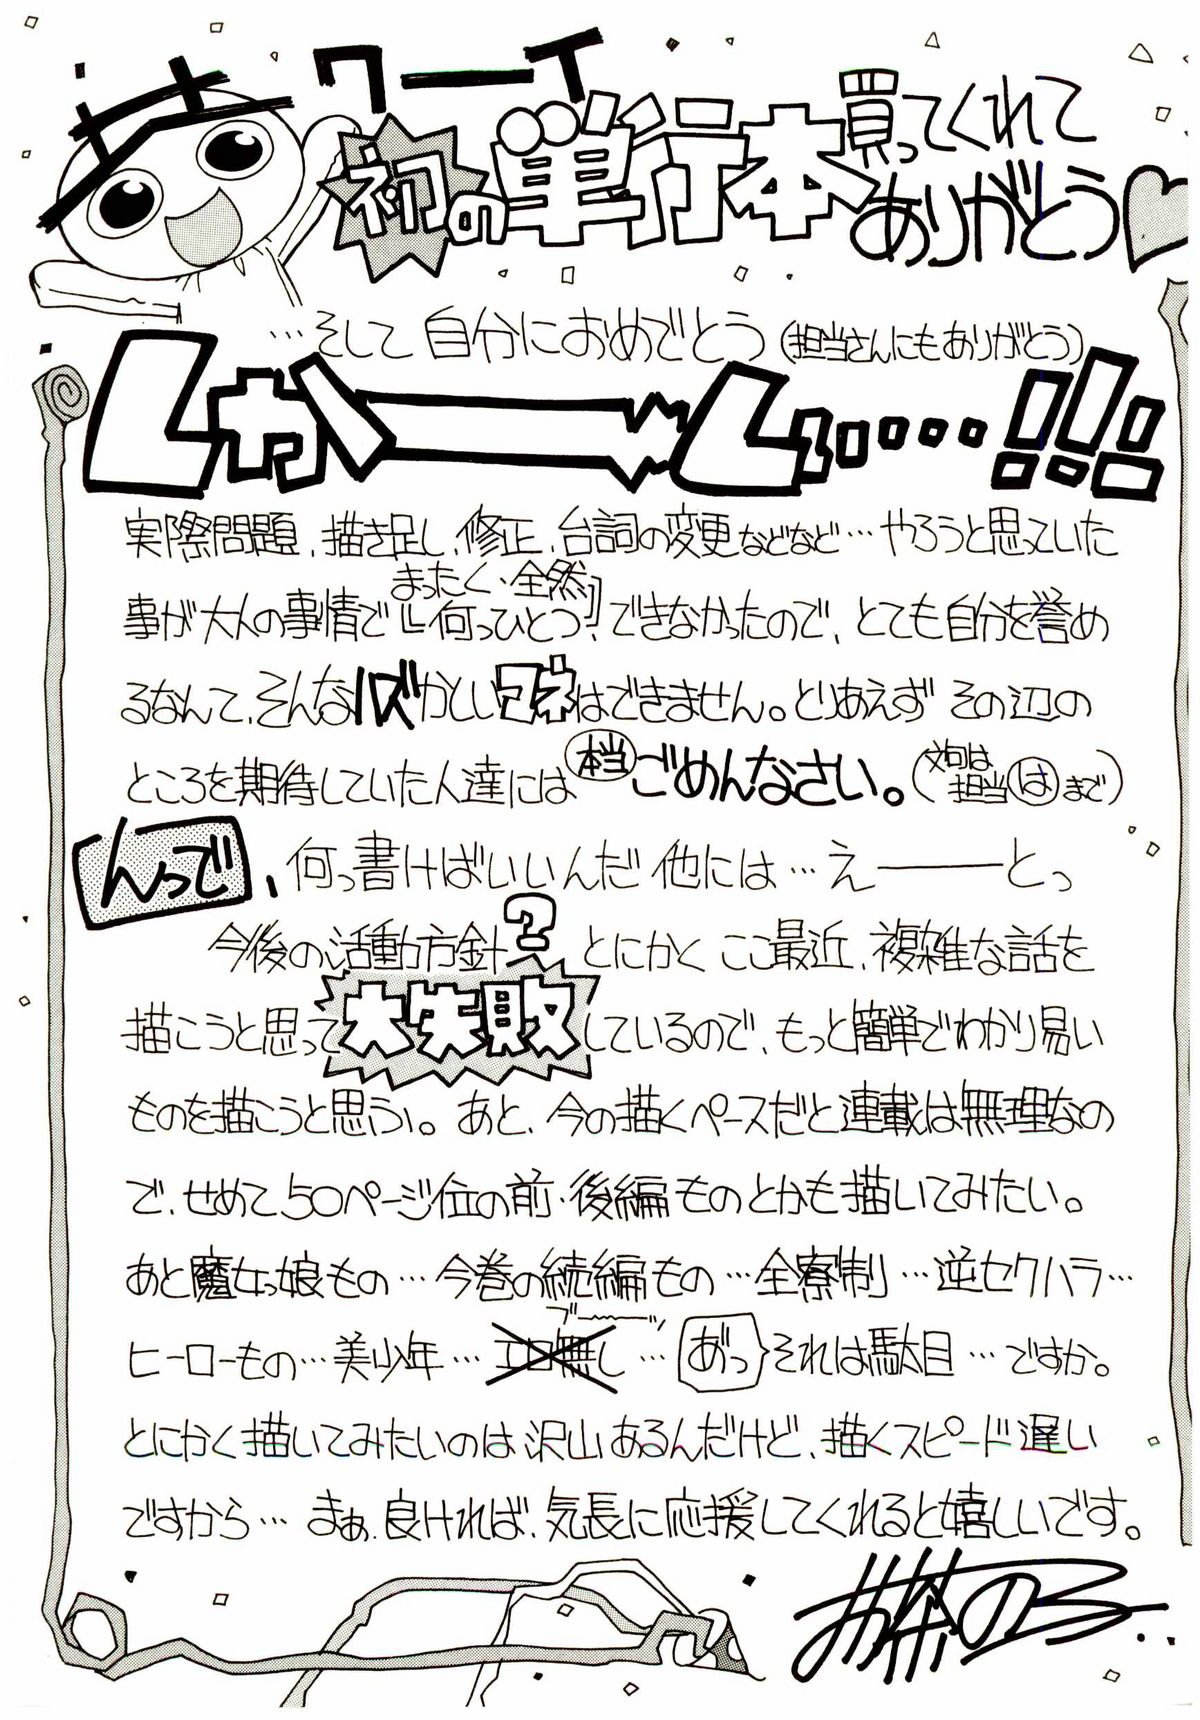 ワーイ
初の単行本買ってくれて
ありがとう♡
…そして自分におめでとう(担当さんにもありがとう)
しかーーしぃ…!!!
実際問題、描き足し、修正、台詞の変更などなど…やろうと思っていた
まったく・全然
事が大人の事情で『何っひとつ』できなかったので、とても自分を誉め
るなんて、そんなハズかしいマネはできません。とりあえずその辺の
ところを期待していた人達には本当ごめんなさい。(文句は担当はまで)
んっで、何っ書けばいいんだ他には…えーーーとっ
今後の活動方針? とにかくここ最近、複雑な話を
描こうと思って大失敗しているので、もっと簡単でわかり易い
ものを描こうと思うぅ。あと、今の描くペースだと連載は無理なの
で、せめて50ページ位の前・後編ものとかも描いてみたい。
あと魔女っ娘もの…今巻の続編もの…全寮制…逆セクハラ…
ブーーッ
ヒーローもの…美少年…エロ無し…あ゛っそれは駄目…ですか。
とにかく描いてみたいのは沢山あるんだけど、描くスピード遅い
ですから…まぁ、良ければ、気長に応援してくれると嬉しいです。